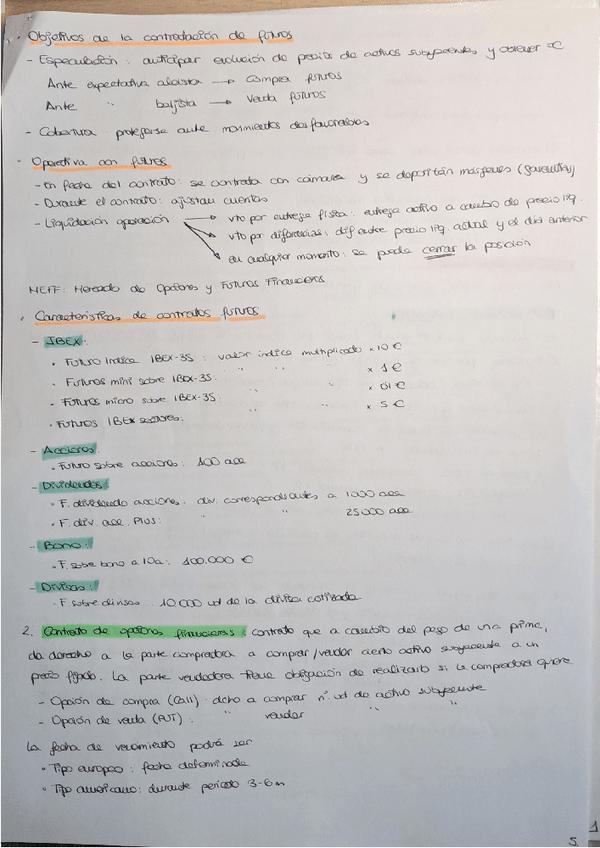 · Objetivos de la contratación de futuros
- Especulación: anticipar evolución de precios de activos subyacentes y obtener €
Ante expectativa alcista → Compra futuros
Ante " bajista → Venta futuros
- Cobertura protegerse ante movimientos desfavorables
· Operativa con futuros
- En fecha del contrato: se contrata con cámara y se depositan márgenes (garantías)
- Durante el contrato: ajustan cuentas
- Liquidación operación → vto por entrega física: entrega activo a cambio de precio liq.
→ vto por diferencias: dif entre precio liq. actual y el día anterior
→ en cualquier momento: se puede cerrar la posición
MEFF: Mercado de Opciones y Futuros Financieros
· Características de contratos futuros
- IBEX:
· Futuro Indice IBEX-35: valor indice multiplicado x 10 €
· Futuros mini sobre IBEX-35: " " x 1 €
· Futuros micro sobre IBEX-35: " " x 0,1 €
· Futuros IBEX sectores: " " x 5 €
- Acciones:
· Futuro sobre acciones: 100 acc
- Dividendos:
· F. dividendo acciones: div. correspondientes a 1000 acc
· F. div. acc. Plus: " " 25.000 acc
- Bono:
· F. sobre bono a 10a: 100.000 €
- Divisas:
· F sobre divisas: 10.000 ud de la divisa cotizada
2. Contrato de opciones financieras: contrato que a cambio del pago de una prima,
da derecho a la parte compradora a comprar/vender cierto activo subyacente a un
precio fijado. La parte vendedora tiene obligación de realizarlo si la compradora quiere
- Opción de compra (Call): dcho a comprar nº ud de activo subyacente
- Opción de venta (PUT): " vender " "
La fecha de vencimiento podrá ser
· Tipo europeo: fecha determinada
· Tipo americano: durante periodo 3-6 m
5.
1